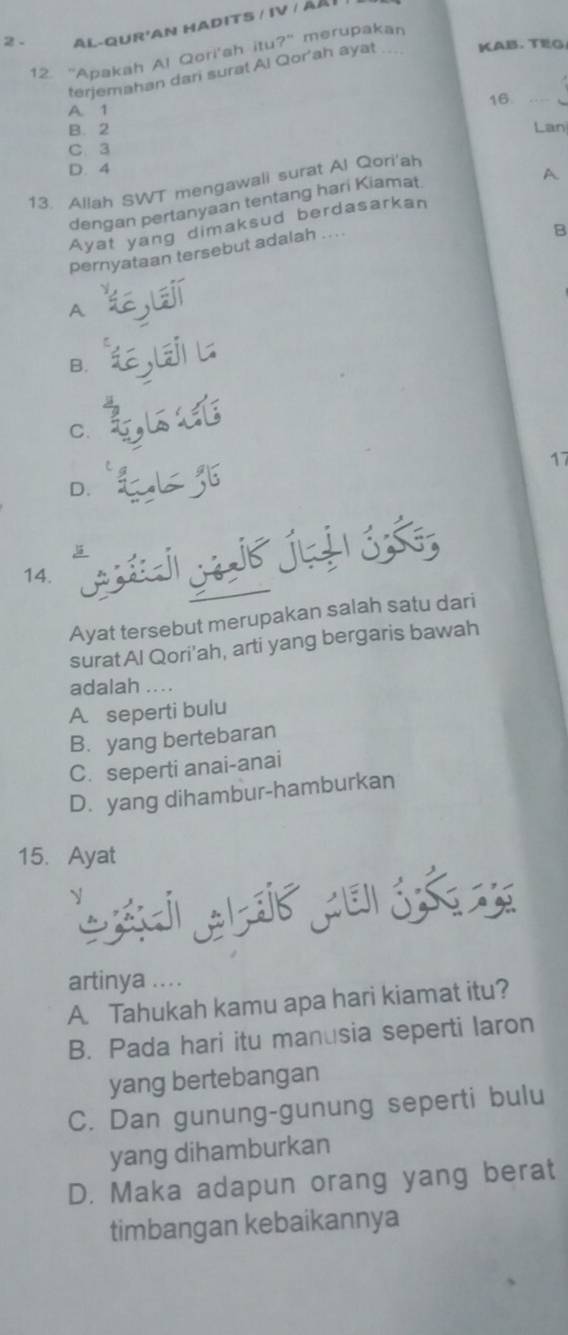 2 - AL-QUR'AN HADITS / IV /
KAB. TEG
12. "Apakah Al Qori'ah itu?" merupakan
terjemahan dari surat Al Qor'ah ayat ....
A. 1
B. 2
C. 3
D. 4
13. Allah SWT mengawali surat Al Qori'ah
dengan pertanyaan tentang hari Kiamat.
Ayat yang dimaksud berdasarkan
pernyataan tersebut adalah ....
A. اَلْقَارِعَةُۙ
B. مَا الْقَارِعَةُ ۚ
C. فَاُمُّهٗ هَاوِيَةٌ ۗ
D. نَارٌ حَامِيَةٌ ࣖ
14. وَتَكُوْنُ الْجِبَالُ كَالْعِهْنِ الْمَنْفُوْشِۗ
Ayat tersebut merupakan salah satu dari
surat Al Qori'ah, arti yang bergaris bawah
adalah ....
A. seperti bulu
B. yang bertebaran
C. seperti anai-anai
D. yang dihambur-hamburkan
15. Ayat
يَوْمَ يَكُوْنُ النَّاسُ كَالْفَرَاشِ الْمَبْثُوْثِۙ
artinya ....
A. Tahukah kamu apa hari kiamat itu?
B. Pada hari itu manusia seperti laron
yang bertebangan
C. Dan gunung-gunung seperti bulu
yang dihamburkan
D. Maka adapun orang yang berat
timbangan kebaikannya
16. ....
Lan
A
B
17